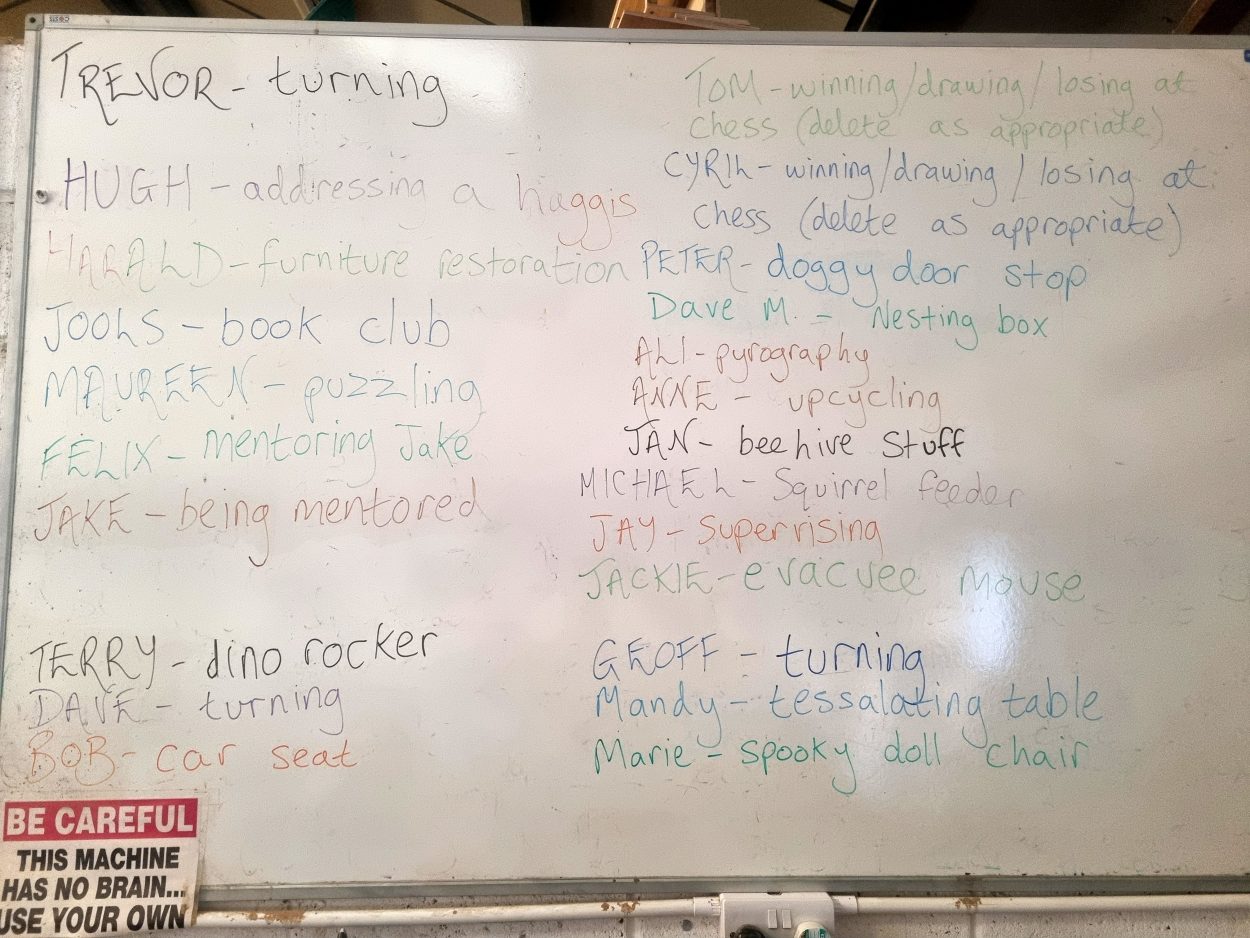 TREVOR - turning
HUGH - addressing a haggis
HARALD - furniture restoration
JOOLS - book club
MAUREEN - puzzling
FELIX - mentoring Jake
JAKE - being mentored
TERRY - dino rocker
DAVE - turning
BOB - car seat
TOM - winning/drawing/losing at
chess (delete as appropriate)
CYRIL - winning/drawing/losing at
chess (delete as appropriate)
PETER - doggy door stop
Dave M. - Nesting box
ALI - pyrography
ANNE - upcycling
JAN - beehive stuff
MICHAEL - Squirrel feeder
JAY - Supervising
JACKIE - evacuee mouse
GEOFF - turning
Mandy - tessalating table
Marie - spooky doll chair
BE CAREFUL
THIS MACHINE
HAS NO BRAIN...
USE YOUR OWN